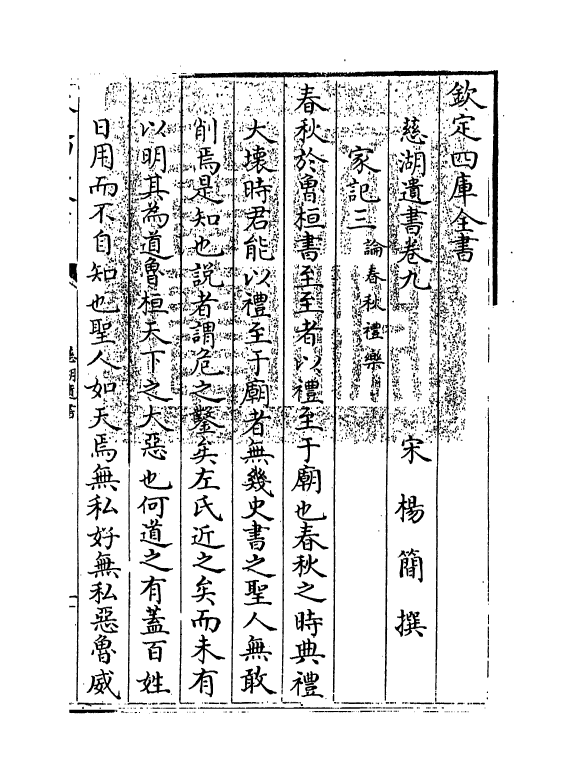 欽定四庫全書
慈湖遺書卷九
宋 楊簡 撰
家記三
論春秋禮樂
春秋於魯桓書至至者以禮至于廟也春秋之時典禮
大壞時君能以禮至于廟者無幾史書之聖人無敢
削焉是知也説者謂危之鑿矣左氏近之矣而未有
以明其為道魯桓天下之大惡也何道之有蓋百姓
日用而不自知也聖人如天焉無私好無私惡魯威
慈湖遺書
一